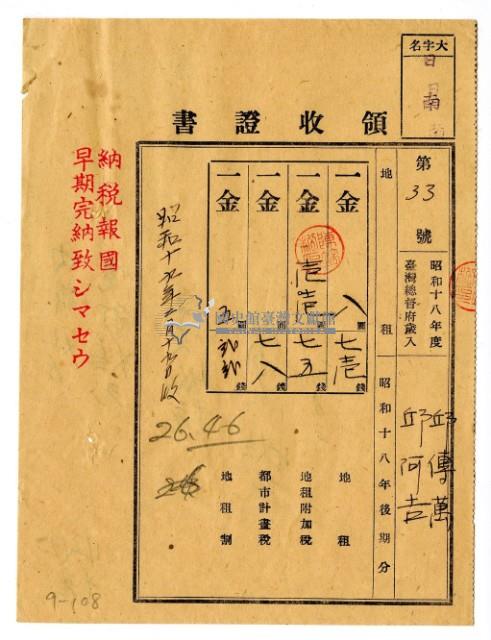 大字名
日南
領收證書
第33號
昭和十八年度
臺灣總督府歲入
地租
昭和十八年後期分
邱傳萬
邱阿吉
一金 八圓七壱錢 地租
一金 圓七五錢 地租附加稅
一金 圓七八錢 都市計畫稅
一金 圓 錢 地租割
26.46
納稅報國
早期完納致シマセウ
國史館臺灣文獻館
9-108